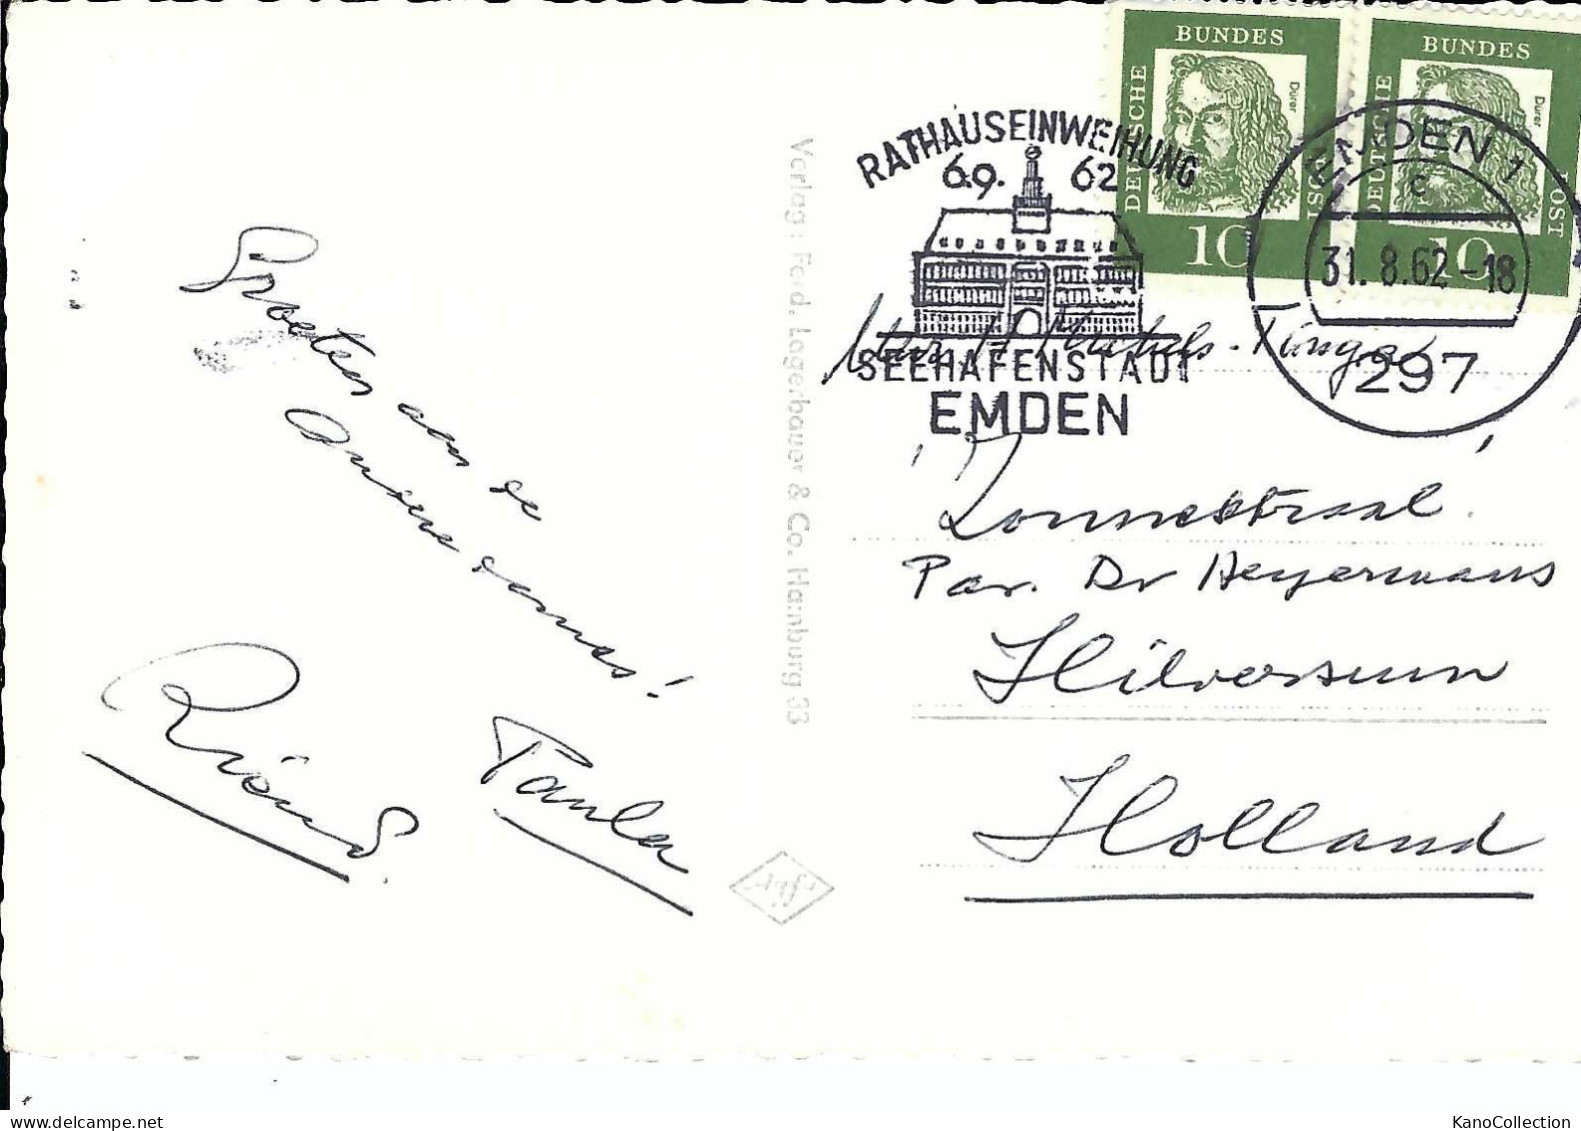 Groeten aan de
andere dames!
Riens.
Paula
Verlag: Ferd. Lagerbauer & Co. Hamburg 33
Agfa
BUNDES
DEUTSCHE
POST
Dürer
10
BUNDES
DEUTSCHE
POST
Dürer
10
RATHAUSEINWEIHUNG
6.9. 62
SEEHAFENSTADT
EMDEN
EMDEN 1
c
31. 8.62-18
297
"Zonnestraal".
Pav. Dr Heyermans
Hilversum
Holland
KanoCollection